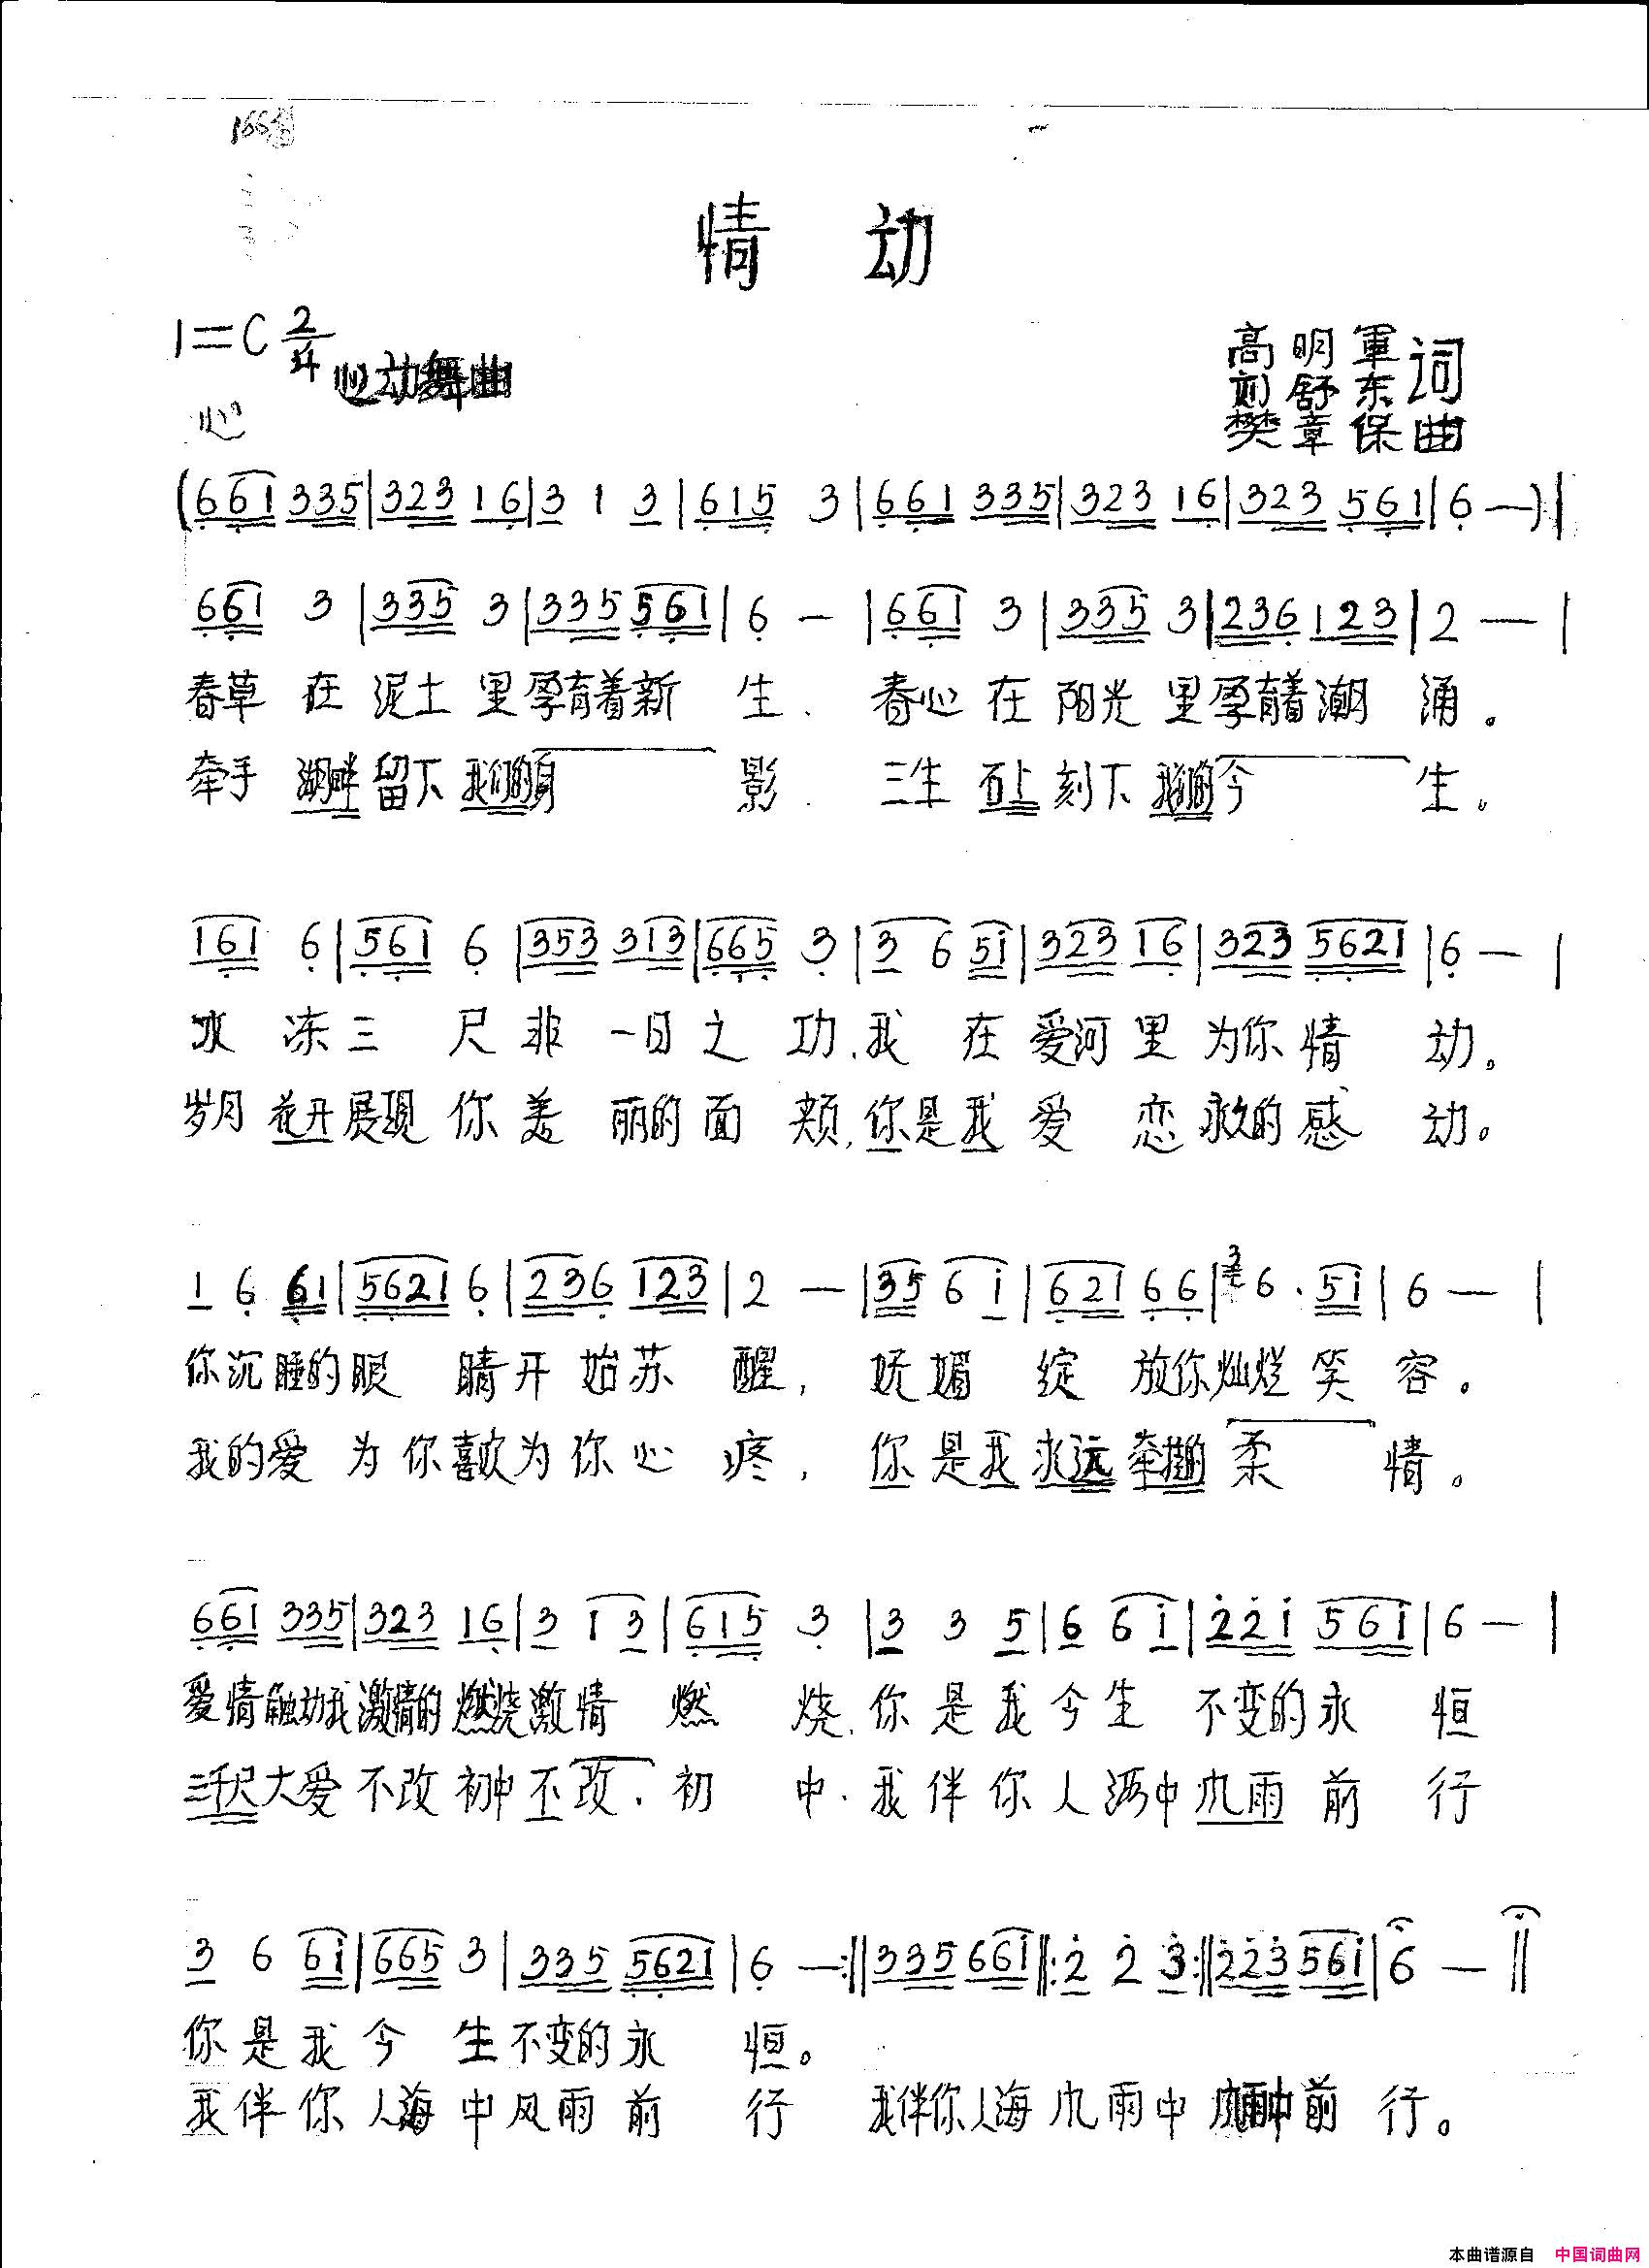 情 动
1=C 2/4
心动舞曲
高明軍
刘舒东 词
樊章保 曲
(6 6 1 3 3 5 | 3 2 3 1 6 | 3 1 3 | 6 1 5 3 | 6 6 1 3 3 5 | 3 2 3 1 6 | 3 2 3 5 6 1 | 6 — ) |
6 6 1 3 | 3 3 5 3 | 3 3 5 5 6 1 | 6 — | 6 6 1 3 | 3 3 5 3 | 2 3 6 1 2 3 | 2 — |
春草 在 泥土 里孕育着新 生. 春心 在 阳光 里孕育着潮 涌。
牵手 湖畔 留下 我们的身 影. 三生 石上 刻下 我们的今 生。
1 6 1 6 | 5 6 1 6 | 3 5 3 3 1 3 | 6 6 5 3 | 3 6 5 i | 3 2 3 1 6 | 3 2 3 5 6 2 1 | 6 — |
冰 冻 三 尺 非 一日 之 功, 我 在 爱河 里 为你 情 动。
岁月 花开 展现 你 美 丽的 面 颊, 你是我 爱 恋 永久的 感 动。
1 6 6 1 | 5 6 2 1 6 | 2 3 6 1 2 3 | 2 — | 3 5 6 i | 6 2 1 6 6 | 3 6 . 5 i | 6 — |
你沉睡的眼 睛开 始苏 醒, 妩媚 绽 放你灿烂 笑 容。
我的爱 为你喜欢为你心 疼, 你是我永远牵挂的 柔 情。
6 6 1 3 3 5 | 3 2 3 1 6 | 3 1 3 | 6 1 5 3 | 3 3 5 | 6 6 i | 2 2 i 5 6 i | 6 — |
爱情触动我激情的燃烧激情 燃 烧, 你是我今生 不变的永 恒
三千尺大爱不改初中不改. 初 中. 我伴你人海中风雨 前 行
3 6 6 i | 6 6 5 3 | 3 3 5 5 6 2 1 | 6 — :|| 3 3 5 6 6 i ||: 2 2 3 :|| 2 2 3 5 6 i | 6 — ||
你是我今 生不变的永 恒。
我伴你人海 中风雨前 行 我伴你人海风雨中 风雨中前 行。
本曲谱源自 中国词曲网